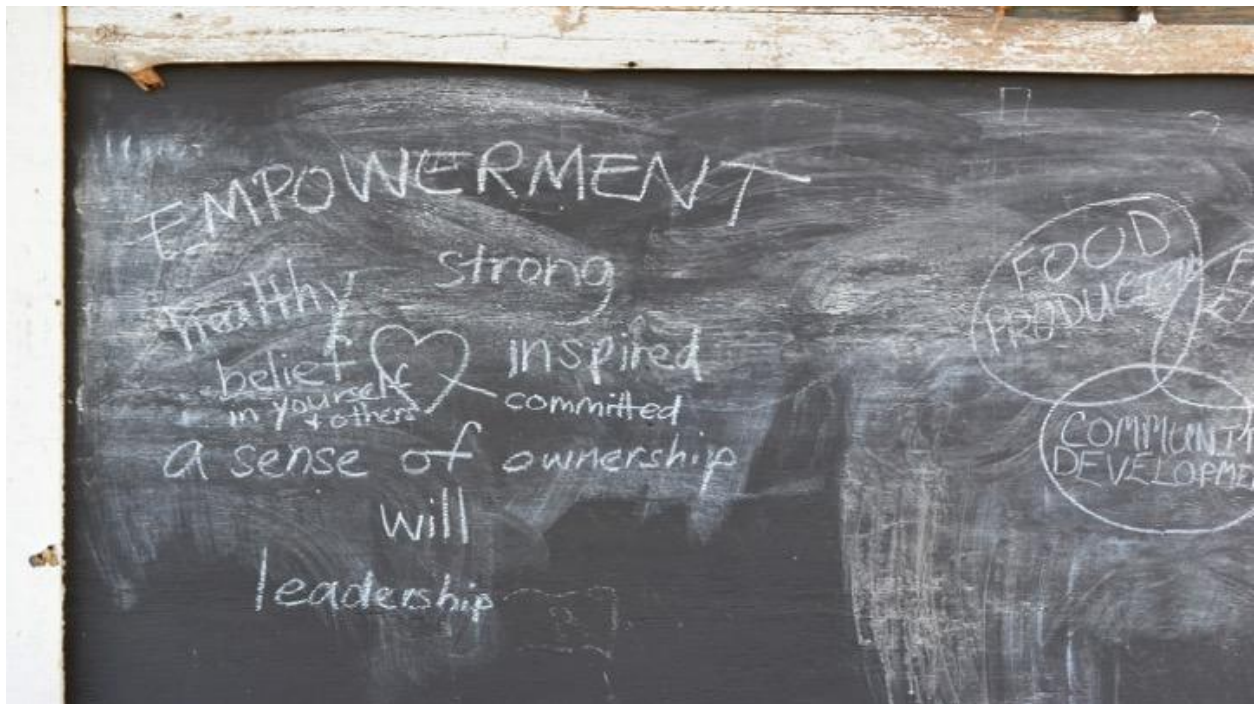 EMPOWERMENT
strong
healthy
belief
in yourself
& others
inspired
committed
a sense of ownership
will
leadership
FOOD
PRODUCTION
COMMUNI
DEVELOPME